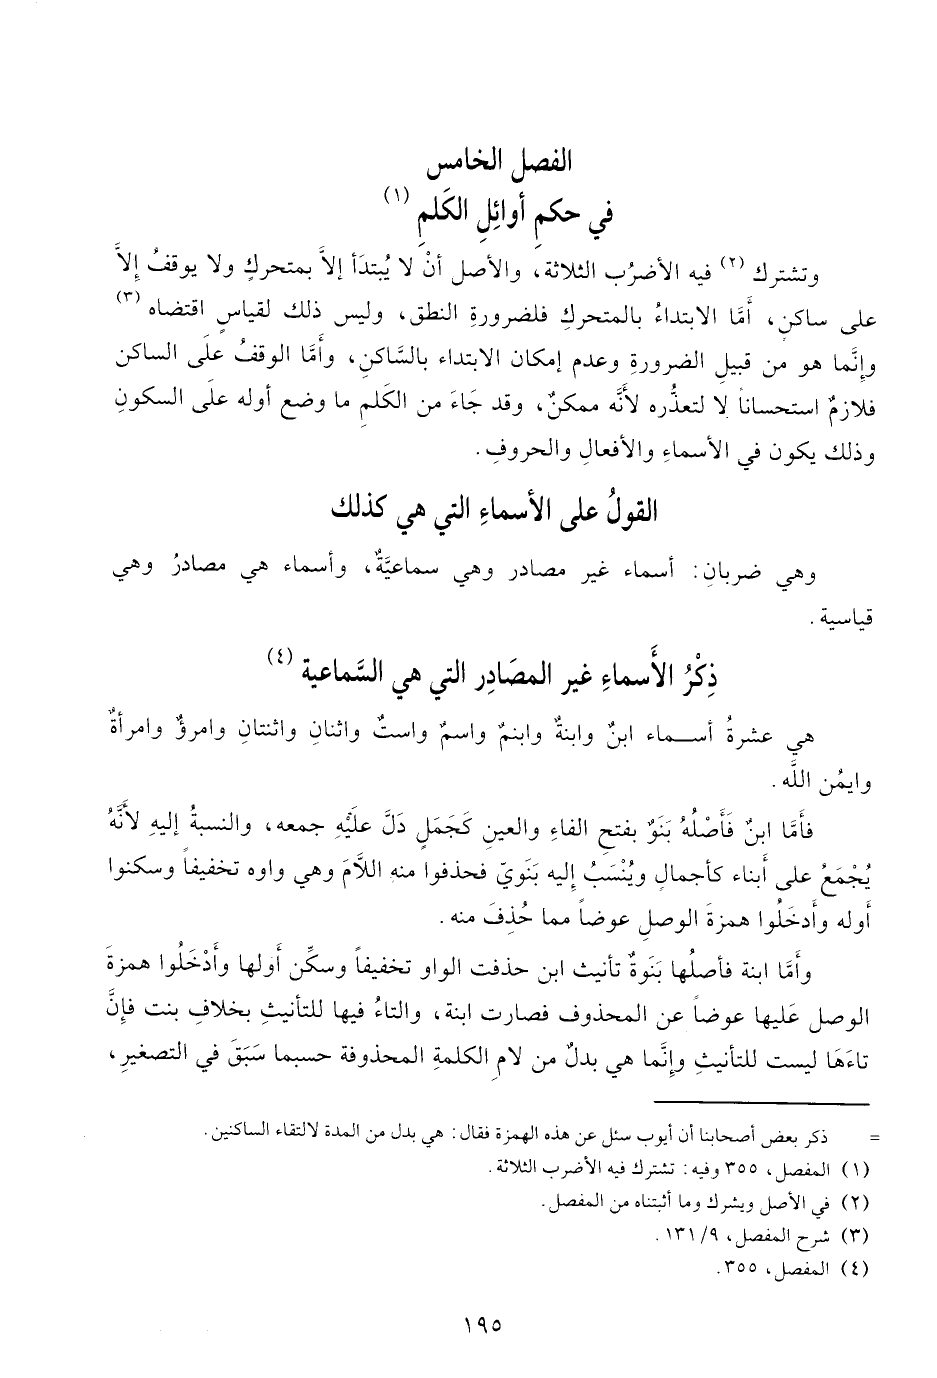 الفصل الخامس
في حكمِ أوائِلِ الكَلمِ (١)
وتشترك (٢) فيه الأضرُب الثلاثة، والأصل أنْ لا يُبتدَأ إلاَّ بمتحركٍ ولا يوقفُ إلاَّ
على ساكنٍ، أمَّا الابتداءُ بالمتحركِ فلضرورةِ النطق، وليس ذلك لقياسٍ اقتضاه (٣)
وإنَّما هو من قبيلِ الضرورةِ وعدم إمكان الابتداء بالسَّاكنِ، وأمَّا الوقفُ علَى الساكن
فلازمٌ استحساناً لا لتعذُّره لأنَّه ممكنٌ، وقد جَاءَ من الكَلمِ ما وضع أوله علَى السكونِ
وذلك يكون في الأسماءِ والأفعالِ والحروفِ.
القولُ على الأسماءِ التي هي كذلك
وهي ضربانِ: أسماء غير مصادر وهي سماعيَّةٌ، وأسماء هي مصادرُ وهي
قياسية.
ذِكْرُ الأَسماءِ غير المصَادِر التي هي السَّماعية (٤)
هي عشرةُ أسمـاء ابنٌ وابنةٌ وابنمٌ واسمٌ واستٌ واثنانِ واثنتانِ وامرؤٌ وامرأةٌ
وايمُن اللَّه.
فأمَّا ابنٌ فَأصْلُهُ بَنَوٌ بفتح الفاءِ والعينِ كَجَمَلٍ دَلَّ علَيْهِ جمعه، والنسبةُ إليهِ لأنَّهُ
يُجْمَعُ على أَبناء كأجمالٍ ويُنْسَبُ إليه بَنَويّ فحذفوا منهِ اللاَّمَ وهي واوه تخفيفاً وسكنوا
أوله وأدخَلُوا همزةَ الوصلِ عوضاً مما حُذِفَ منه.
وأمَّا ابنة فأصلُها بَنَوةٌ تأنيث ابن حذفت الواو تخفيفاً وسكِّن أولها وأَدْخَلُوا همزةَ
الوصلِ عَليها عوضاً عن المحذوف فصارت ابنة، والتاءُ فيها للتأنيثِ بخلافِ بنت فإنَّ
تاءَهَا ليست للتأنيثِ وإنَّما هي بدلٌ من لامِ الكلمةِ المحذوفة حسبما سَبَقَ في التصغيرِ،
= ذكر بعض أصحابنا أن أيوب سئل عن هذه الهمزة فقال: هي بدل من المدة لالتقاء الساكنين.
(١) المفصل، ٣٥٥ وفيه: تشترك فيه الأضرب الثلاثة.
(٢) في الأصل ويشرك وما أثبتناه من المفصل.
(٣) شرح المفصل، ٩/ ١٣١.
(٤) المفصل، ٣٥٥.
١٩٥